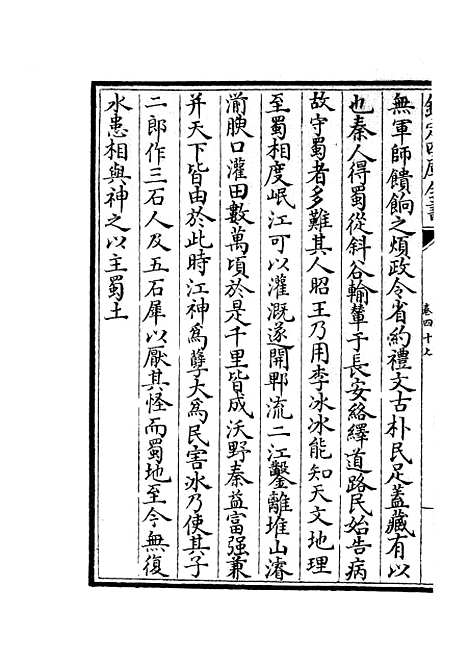 欽定四庫全書
卷四十七
無軍師饋餉之煩政令省約禮文古朴民足蓋藏有以
也秦人得蜀從斜谷輸輦于長安絡繹道路民始告病
故守蜀者多難其人昭王乃用李冰冰能知天文地理
至蜀相度岷江可以灌溉遂開郫流二江鑿離堆山濬
湔腴口灌田數萬頃於是千里皆成沃野秦益富强兼
并天下皆由於此時江神爲孽大爲民害冰乃使其子
二郎作三石人及五石犀以厭其怪而蜀地至今無復
水患相與神之以主蜀土